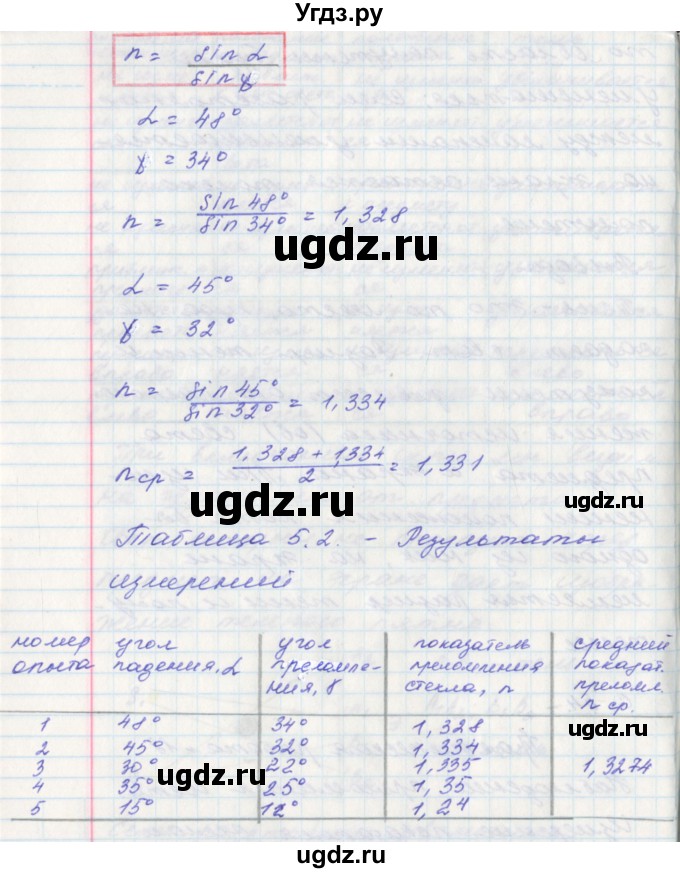 Угдз.ру
n = sin α / sin γ
α = 48°
γ = 34°
n = sin 48° / sin 34° = 1,328
ugdz.ru
α = 45°
γ = 32°
n = sin 45° / sin 32° = 1,334
n ср = 1,328 + 1,334 / 2 = 1,331
ugdz.ru
Таблица 5.2. – Результаты
измерений
номер опыта | угол падения, α | угол преломле-ния, γ | показатель преломления стекла, n | средний показат. преломл. n ср.
1 | 48° | 34° | 1,328
2 | 45° | 32° | 1,334
3 | 30° | 22° | 1,335 | 1,3274
4 | 35° | 25° | 1,35
5 | 15° | 12° | 1,24
ugdz.ru
ugdz.ru
ugdz.ru
ugdz.ru
ugdz.ru